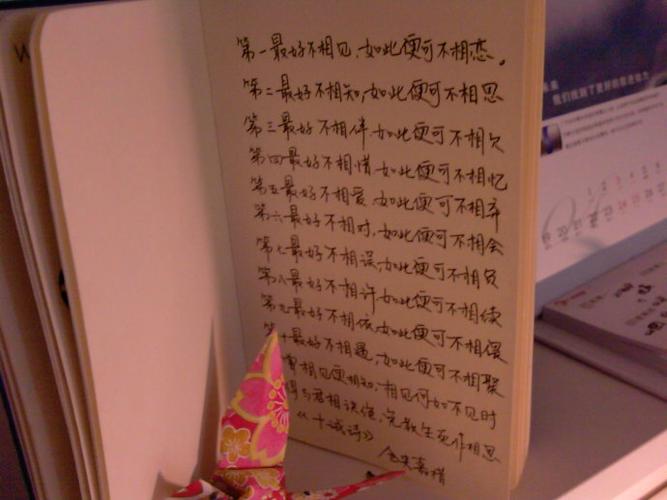 第一最好不相见，如此便可不相恋。
第二最好不相知，如此便可不相思
第三最好不相伴，如此便可不相欠
第四最好不相惜，如此便可不相忆
第五最好不相爱，如此便可不相弃
第六最好不相对，如此便可不相会
第七最好不相误，如此便可不相负
第八最好不相许，如此便可不相续
第九最好不相依，如此便可不相偎
第十最好不相遇，如此便可不相聚
相见便相知，相见何如不见时
与君相决绝，免教生死作相思
《十诫诗》
仓央嘉措
我们找到了更好的
1 2 3 4
19 20 21 22 23 24 25